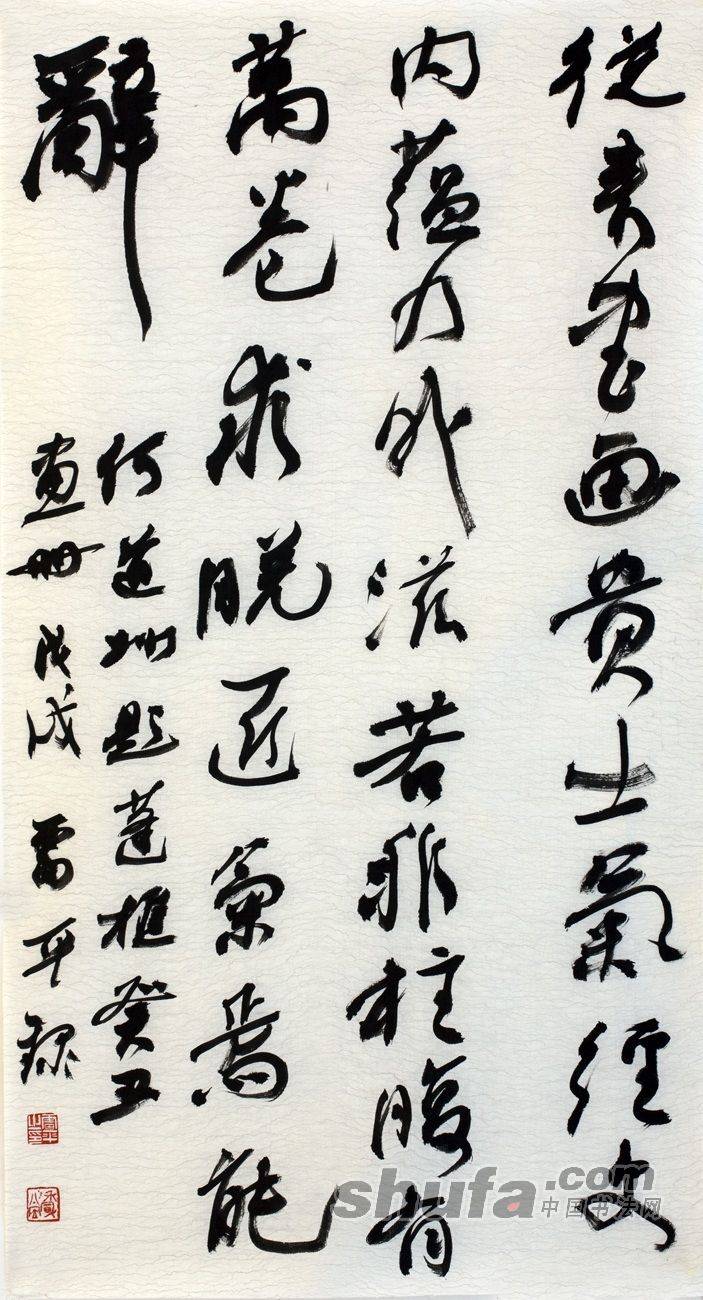 從来書画貴士氣經史
内蘊乃外滋若非柱腹有
萬卷求脱匠氣焉能
辭
何道州題蓬樵癸丑
畫册 戊戌 雷平録
shufa.com
中国书法网